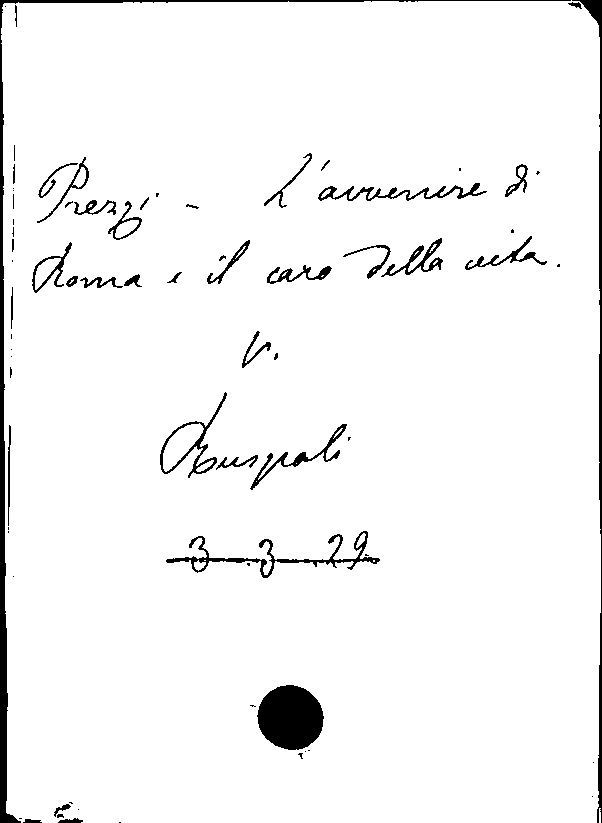 Prezzi - L'avvenire di
Roma e il caro della vita.
V.
Ruspoli
3 3 29